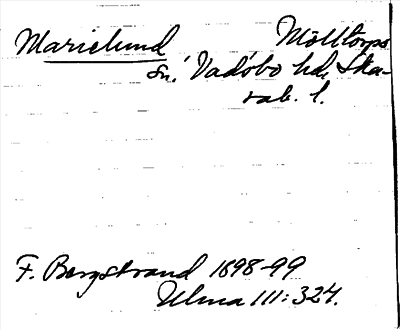 Marielund Mölltorps
sn, Vadsbo hd, Ska-
rab. l.
F. Bergstrand 1898-99
Ulma 111:324.